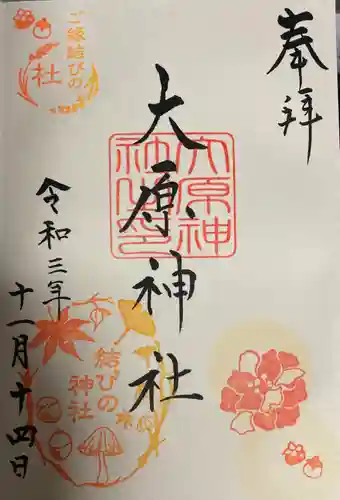 奉拝
大原神社
大原神社之印
令和三年
十一月十四日
ご縁結びの
社
結びの
神社